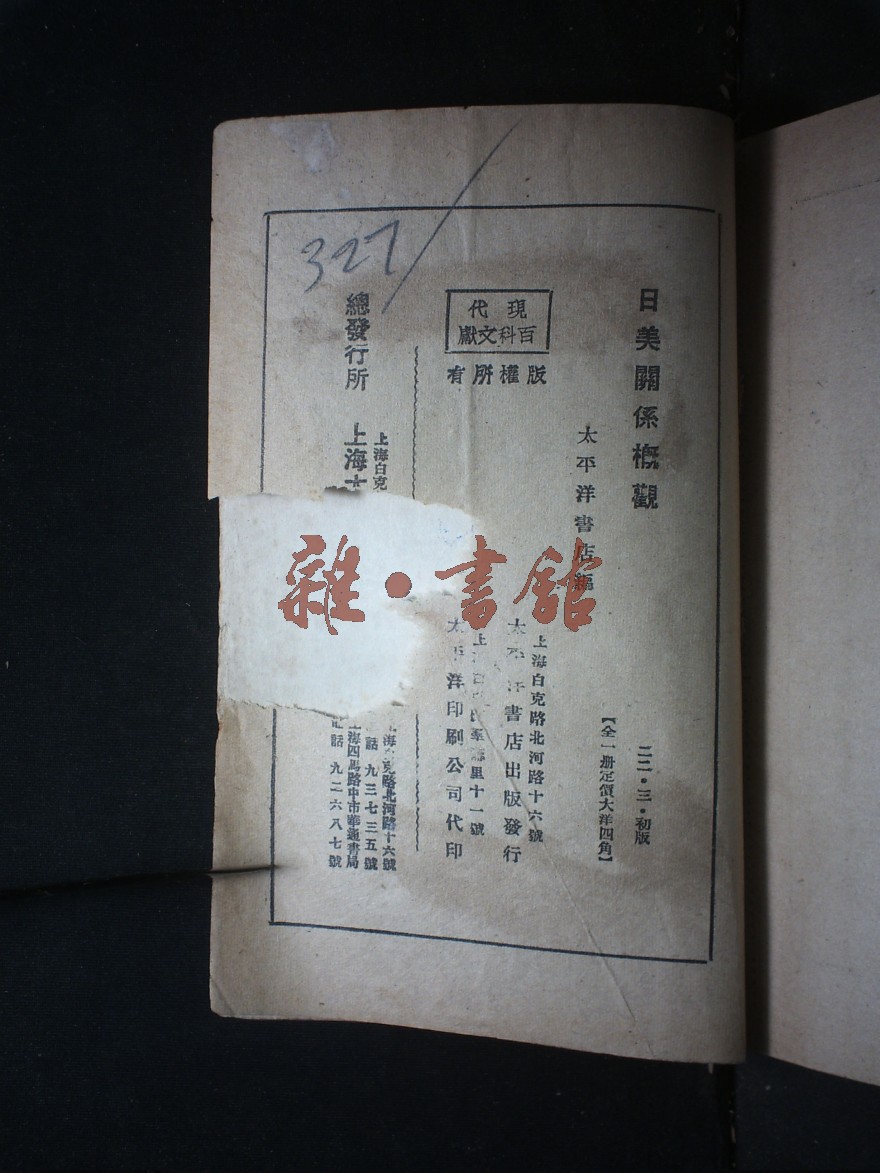 日美關係概觀
二二・三・初版
【全一册定價大洋四角】
太平洋書店編
現代
百科文獻
版權所有
上海白克路北河路十六號
太平洋書店出版發行
里十一號
太平洋印刷公司代印
總發行所
上海白克
上海太
海白克路北河路十六號
話九三七三五號
上海四馬路中市華通書局
電話九二六八七號
327
雜・書館